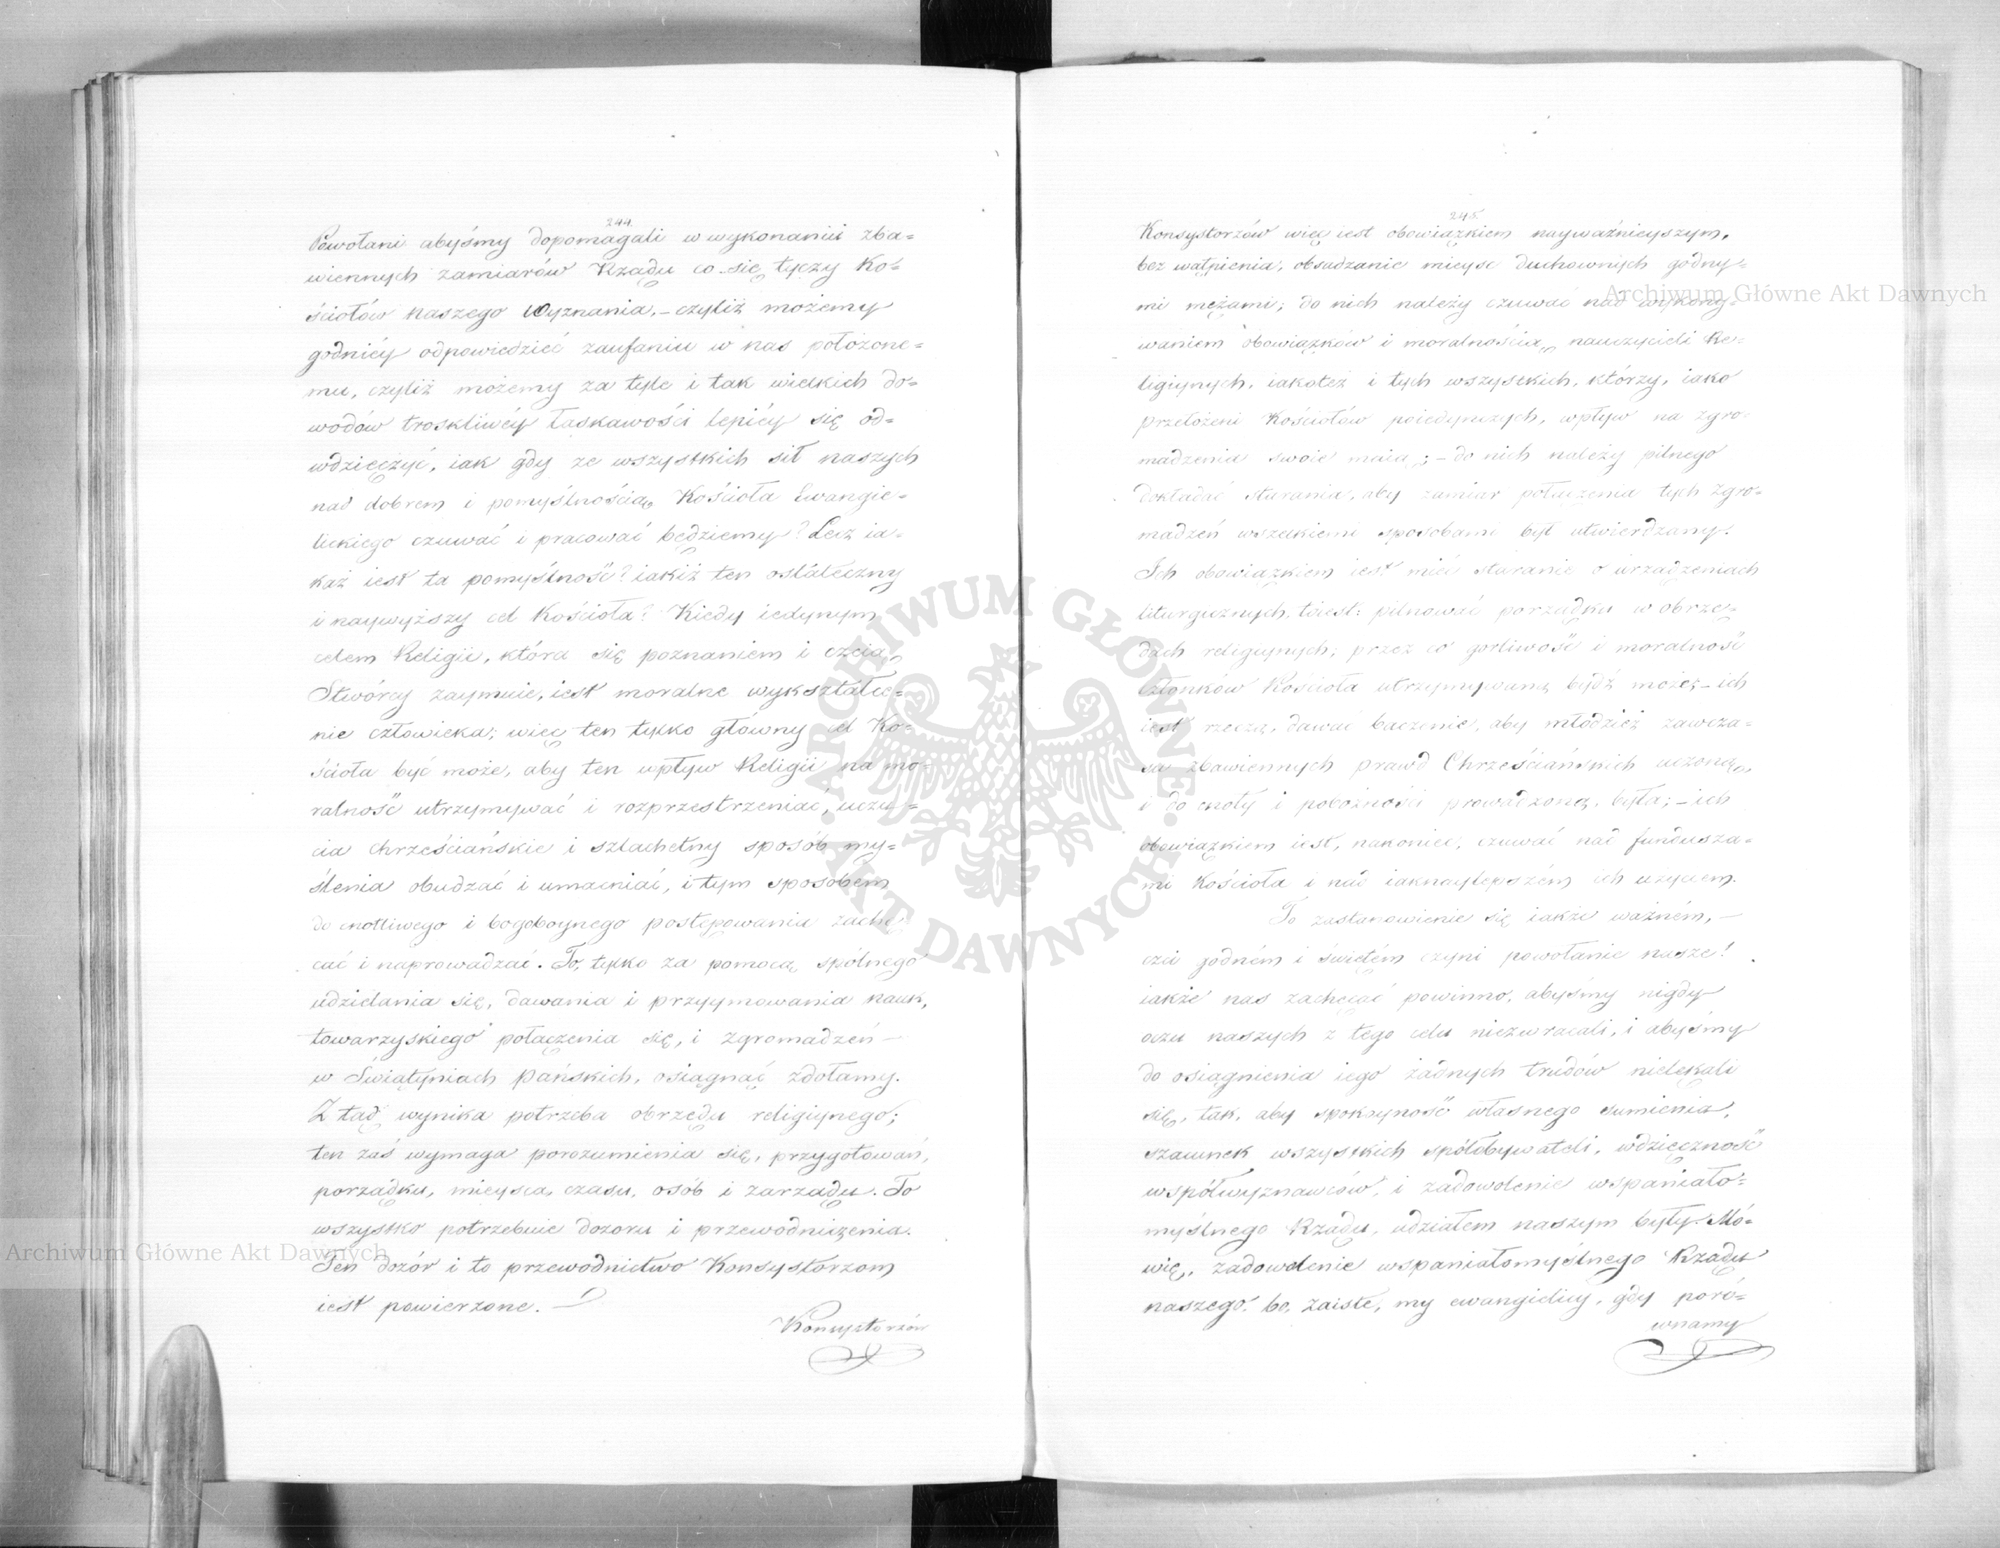 244.
Powołani abyśmy dopomagali w wykonaniu zba=
wiennych zamiarów Rządu co się tyczy Ko=
ściołów naszego Wyznania, – czyliż możemy
godniéy odpowiedzieć zaufaniu w nas położone=
mu, czyliż możemy za tyle i tak wielkich do=
wodów troskliwéy łaskawości lepiéy się od=
wdzięczyć, iak gdy ze wszystkich sił naszych
nad dobrem i pomyślnością Kościoła Ewangie=
lickiego czuwać i pracować będziemy? Lecz ia=
każ iest ta pomyślność? iakiż ten ostateczny
i naywyższy cel Kościoła? Kiedy iedynym
celem Religii, która się poznaniem i czcią
Stwórcy zaymuie, iest moralne wykształce=
nie człowieka; więc ten tylko główny cel Ko=
ścioła być może, aby ten wpływ Religii na mo=
ralność utrzymywać i rozprzestrzeniać, uczu=
cia chrześciańskie i szlachetny sposób my=
ślenia obudzać i umacniać, i tym sposobem
do cnotliwego i bogoboynego postępowania zachę=
cać i naprowadzać. To, tylko za pomocą spólnego
udzielania się, dawania i przyymowania nauk,
towarzyskiego połączenia się, i zgromadzeń –
w Świątyniach Pańskich, osiągnąć zdołamy.
Ztąd wynika potrzeba obrzędu religiynego;
ten zaś wymaga porozumienia się, przygotowań,
porządku, mieysca, czasu, osób i zarządu. To
wszystko potrzebuie dozoru i przewodniczenia.
Ten dozór i to przewodnictwo Konsystorzom
iest powierzone. –
Konsystorzów
245.
Konsystorzów więc iest obowiązkiem nayważnieyszym,
bez wątpienia, obsadzanie mieysc duchownych godny=
mi mężami; do nich należy czuwać nad wykony=
waniem obowiązków i moralnością nauczycieli Re=
ligiynych, iakoteż i tych wszystkich, którzy, iako
przełożeni Kościołów poiedynczych, wpływ na zgro=
madzenia swoie maią; – do nich należy pilnego
dokładać starania, aby zamiar połączenia tych zgro=
madzeń wszelkiemi sposobami był utwierdzany.
Ich obowiązkiem iest mieć staranie o urządzeniach
liturgicznych, t.iest: pilnować porządku w obrzę=
dach religiynych, przez co gorliwość i moralność
Członków Kościoła utrzymywaną bydź może; – ich
iest rzeczą, dawać baczenie, aby młodzież zawcza=
su zbawiennych prawd Chrześciańskich uczoną,
i do cnoty i pobożności prowadzoną była; – ich
obowiązkiem iest, nakoniec, czuwać nad fundusza=
mi Kościoła i nad iaknaylepszém ich użyciem.
To zastanowienie się iakże ważném, –
czci godném i świętém czyni powołanie nasze!
iakże nas zachęcać powinno, abyśmy nigdy
oczu naszych z tego celu niezwracali, i abyśmy
do osiągnienia iego żadnych trudów nielękali
się, tak, aby spokoyność własnego sumienia,
szacunek wszystkich spółobywateli, wdzięczność
współwyznawców, i zadowolenie wspaniało=
myślnego Rządu, udziałem naszym były. Mó=
wię, zadowolenie wspaniałomyślnego Rządu
naszego: bo, zaiste, my ewangielicy, gdy poró=
wnamy
Archiwum Główne Akt Dawnych
Archiwum Główne Akt Dawnych
ARCHIWUM GŁÓWNE
AKT DAWNYCH